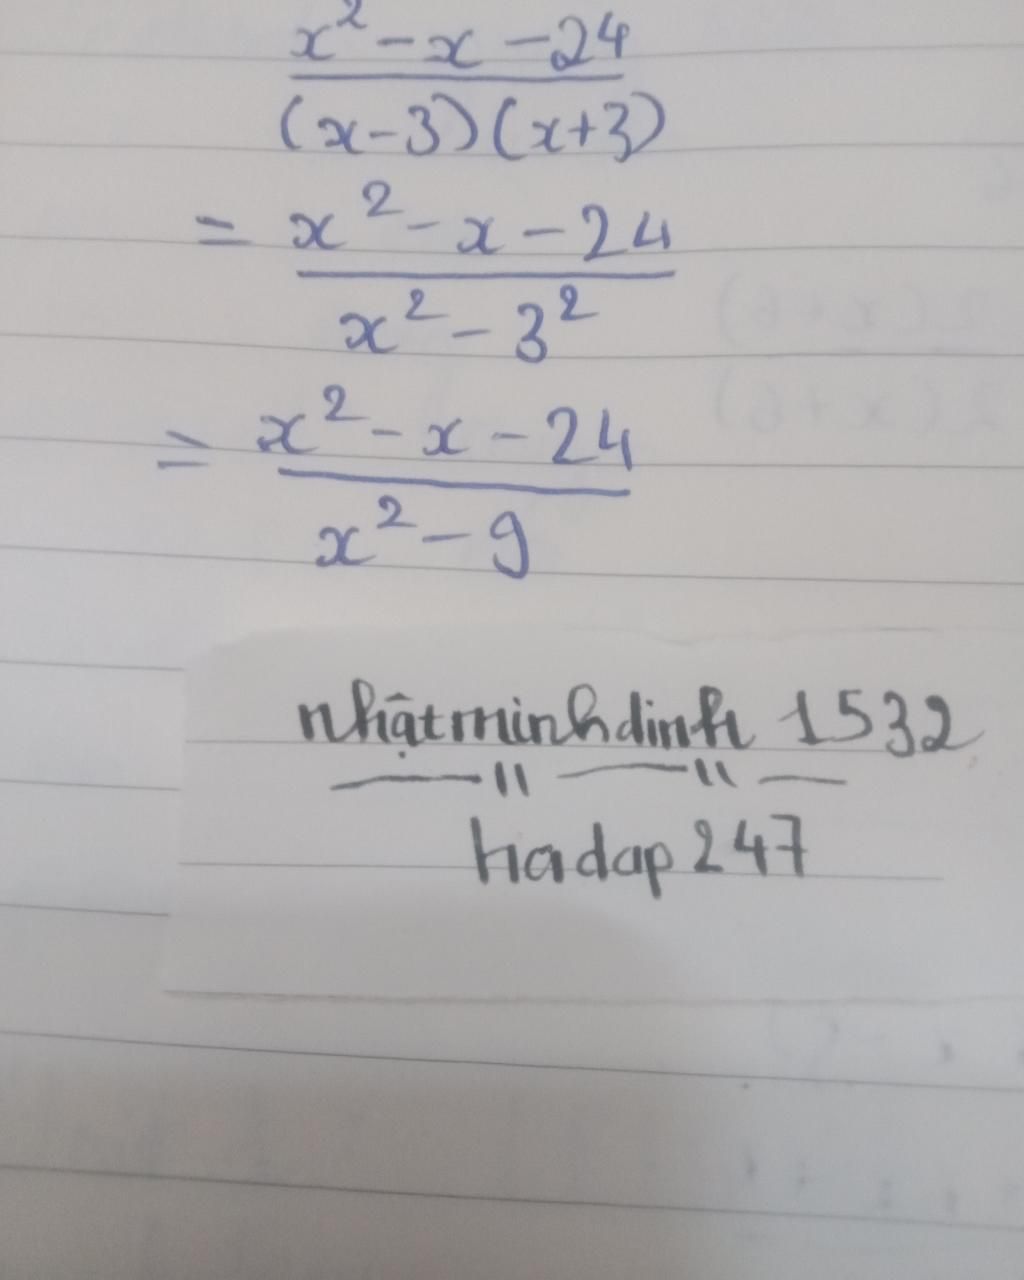 x² - x - 24
(x-3)(x+3)
= x² - x - 24
x² - 3²
= x² - x - 24
x² - 9
nhậtminhdinh 1532
—— " —— " ——
hadap247